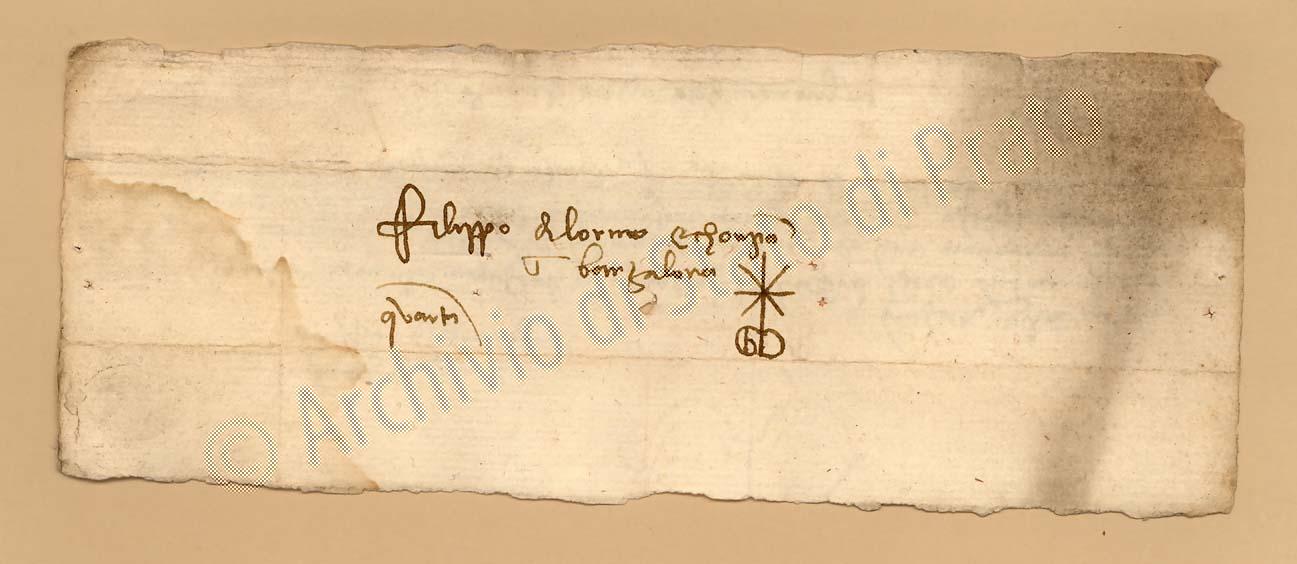 Filippo di lorino e chonpa
barzalona
quarta
© Archivio di Stato di Prato